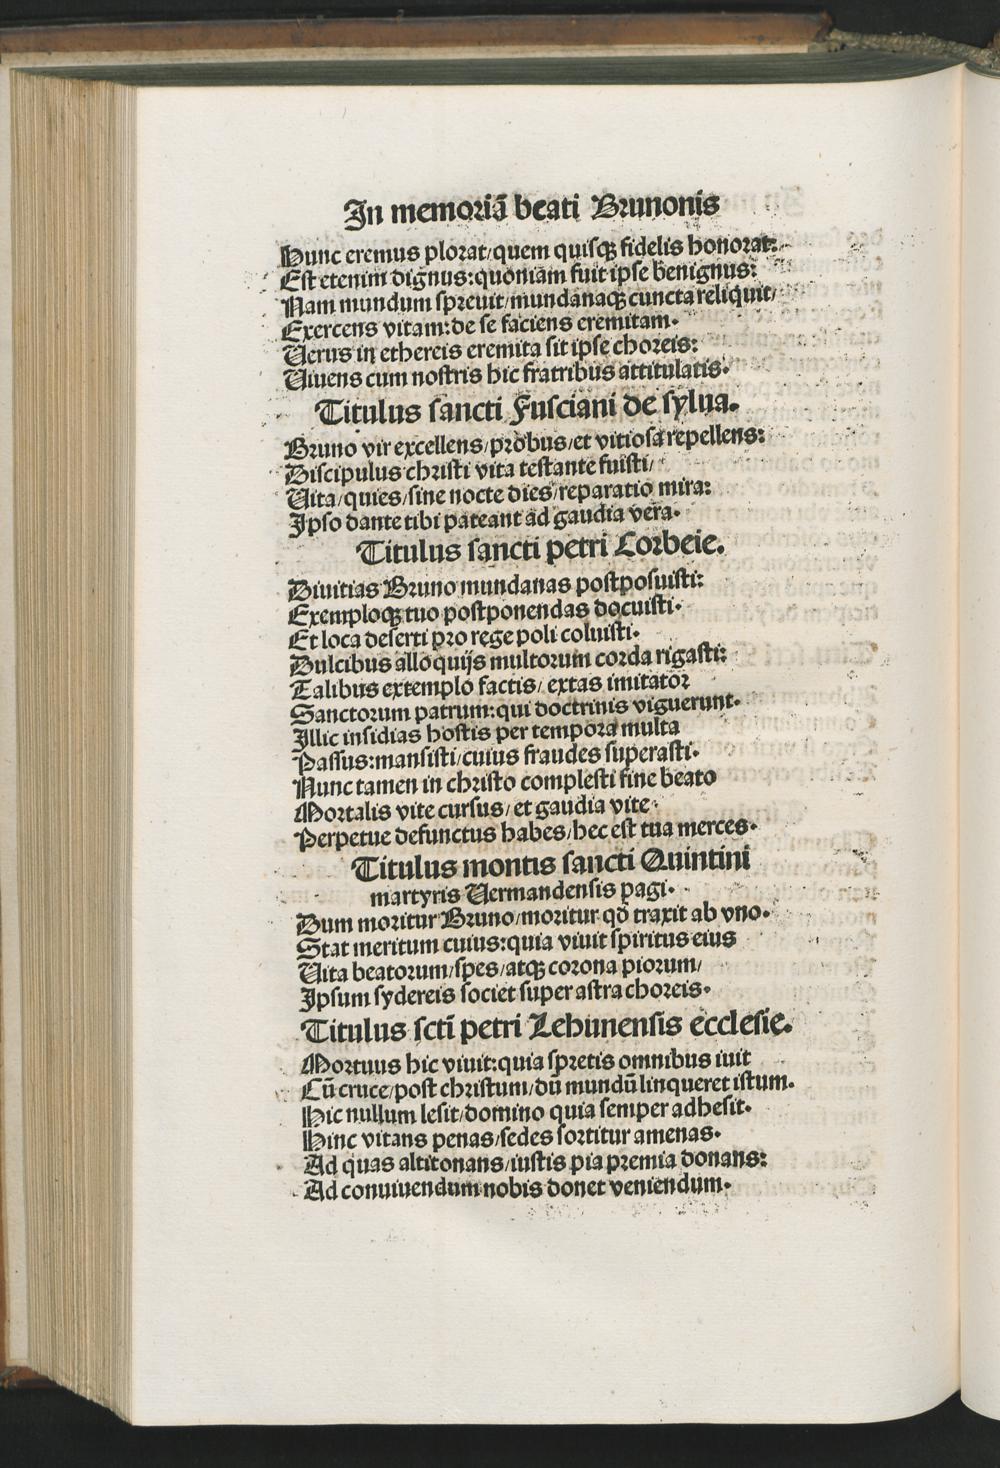 In memoriā beati Brunonis
Hunc eremus plorat/quem quisqꝫ fidelis honorat:
Est etenim dignus:quoniam fuit ipse benignus:
Nam mundum spreuit/mundanaqꝫ cuncta reliquit/
Exercens vitam:de se faciens eremitam.
Uerus in ethereis eremita sit ipse choreis:
Uiuens cum nostris hic fratribus attitulatis.
Titulus sancti Fusciani de sylua.
Bruno vir excellens/probus/et vitiosa repellens:
Discipulus christi vita testante fuisti/
Uita/quies/sine nocte dies/reparatio mira:
Ipso dante tibi pateant ad gaudia vera.
Titulus sancti petri Corbeie.
Diuitias Bruno mundanas postposuisti:
Exemploqꝫ tuo postponendas docuisti.
Et loca deserti pro rege poli coluisti.
Dulcibus alloquijs multorum corda rigasti:
Talibus extemplo factis/extas imitator
Sanctorum patrum:qui doctrinis viguerunt.
Illic insidias hostis per tempora multa
Passus:mansisti/cuius fraudes superasti.
Nunc tamen in christo complesti fine beato
Mortalis vite cursus/et gaudia vite
Perpetue defunctus habes/hec est tua merces.
Titulus montis sancti Quintini
martyris Uermandensis pagi.
Dum moritur Bruno/moritur qd̄ traxit ab vno.
Stat meritum cuius:quia viuit spiritus eius
Uita beatorum/spes/atqꝫ corona piorum/
Ipsum sydereis societ super astra choreis.
Titulus sctī petri Lehunensis ecclesie.
Mortuus hic viuit:quia spretis omnibus iuit
Cū cruce/post christum/dū mundū linqueret istum.
Hic nullum lesit/domino quia semper adhesit.
Hinc vitans penas/sedes sortitur amenas.
Ad quas altitonans/iustis pia premia donans:
Ad conuiuendum nobis donet veniendum.